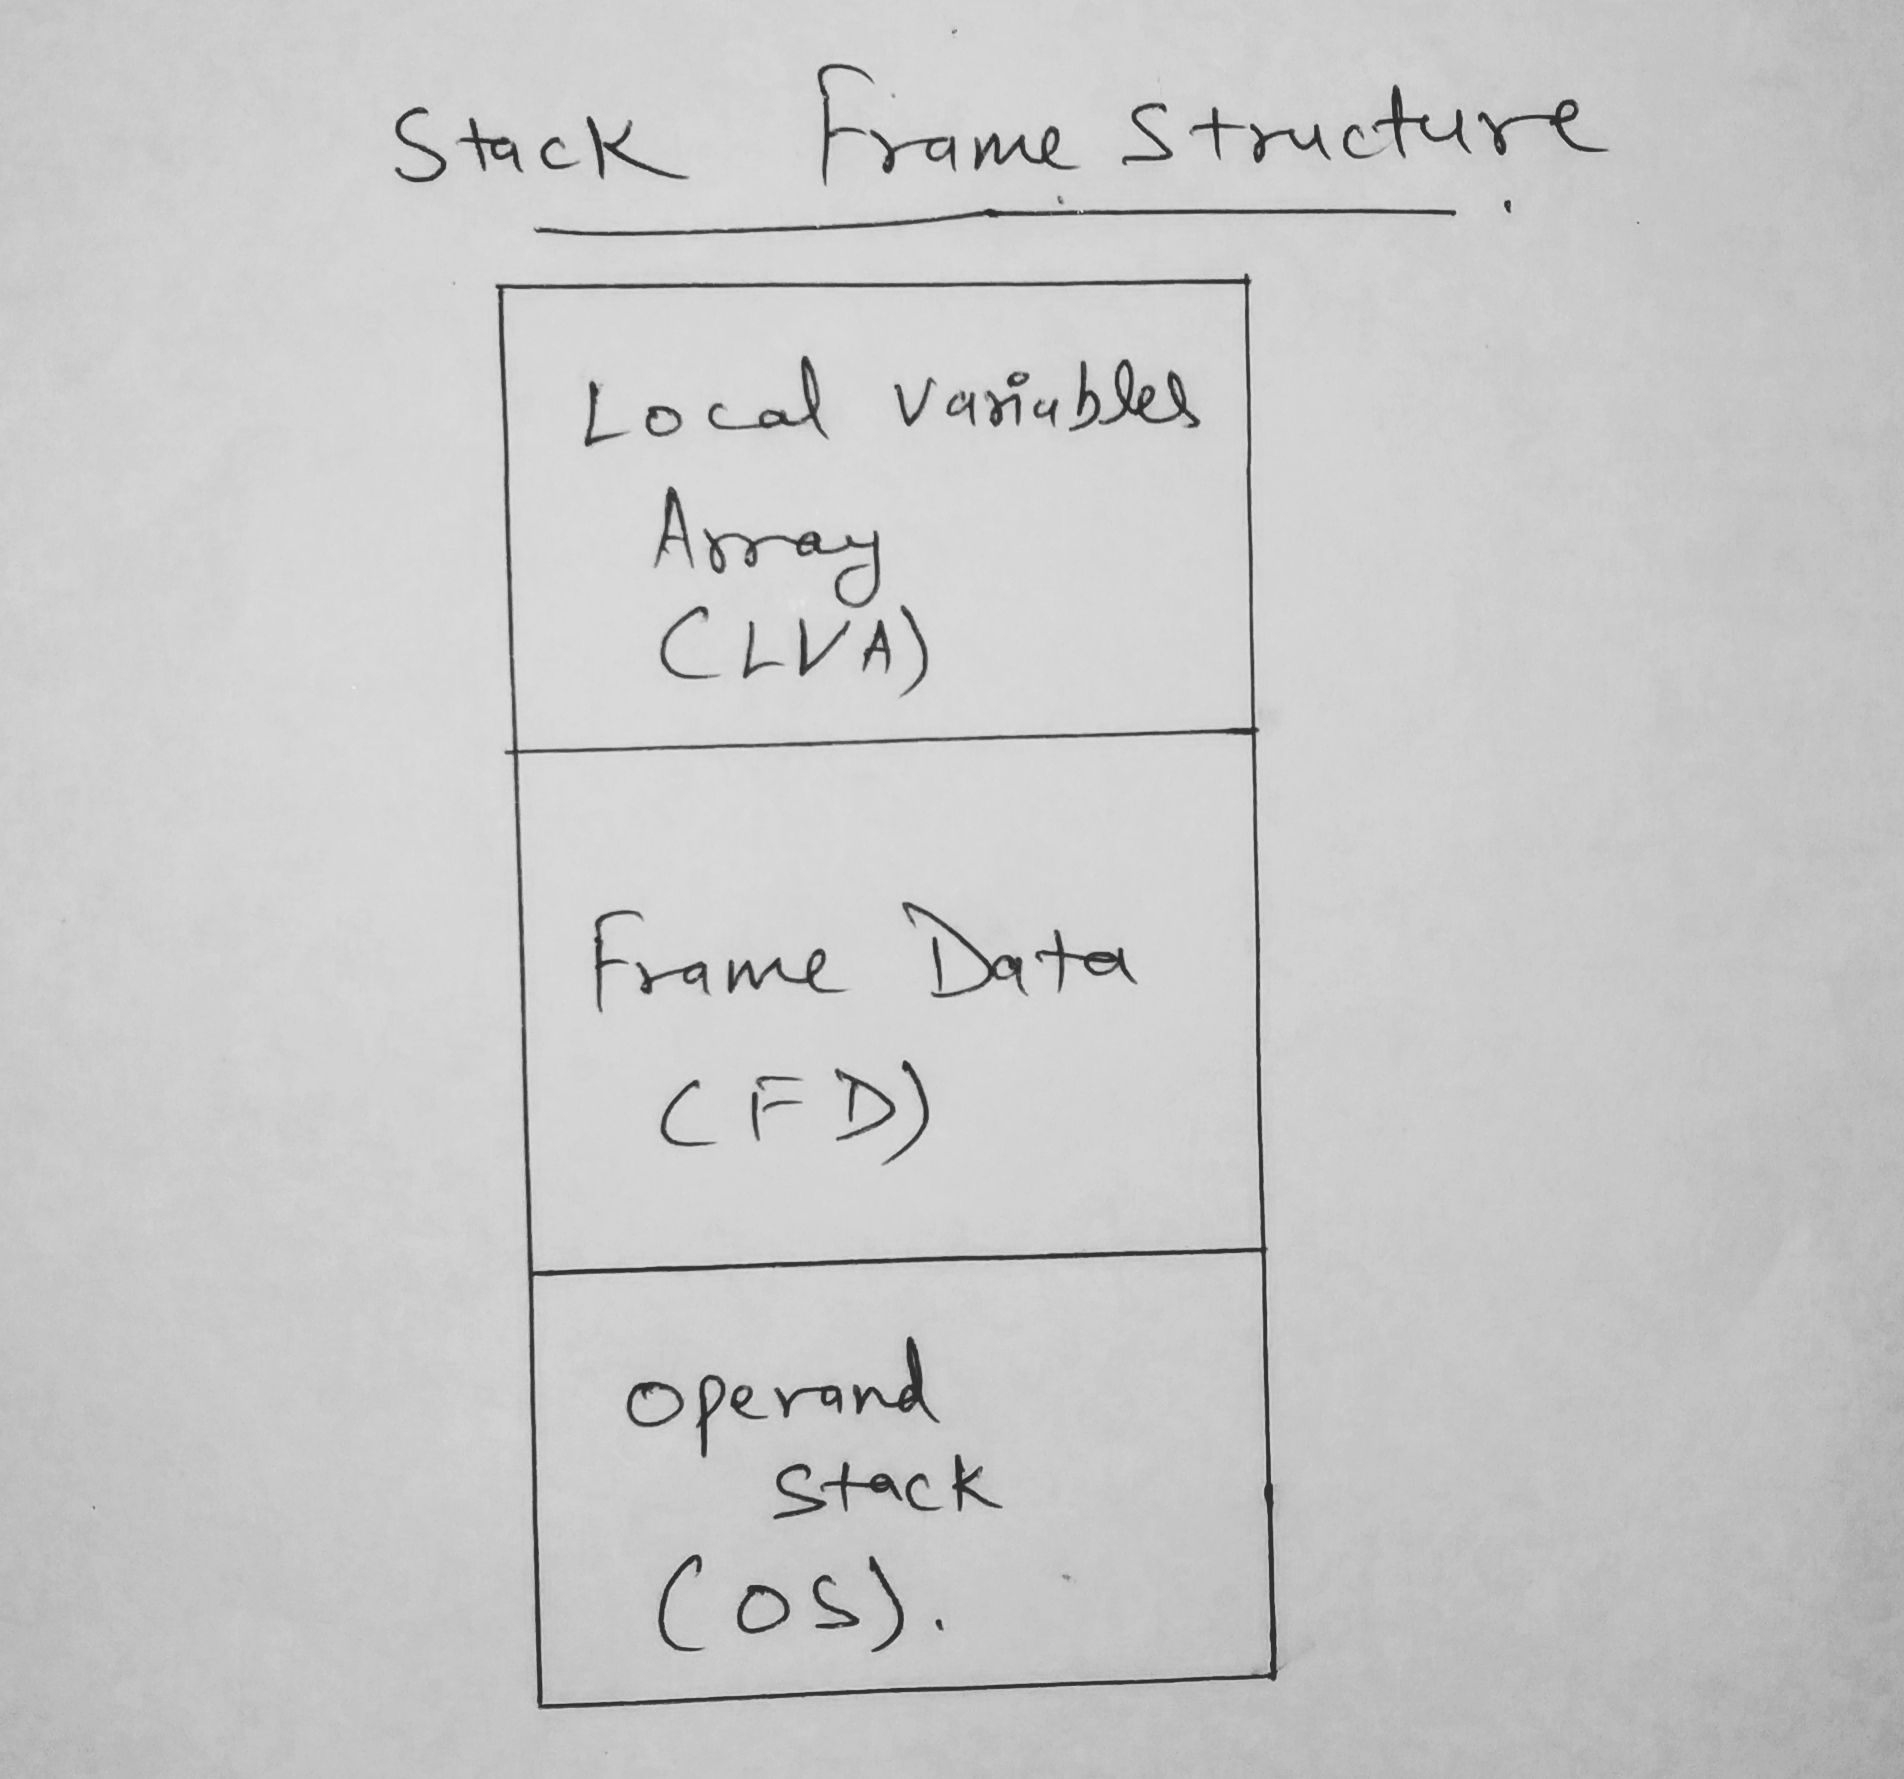 Stack Frame Structure
Local Variables
Array
(LVA)
Frame Data
(FD)
Operand
Stack
(OS).